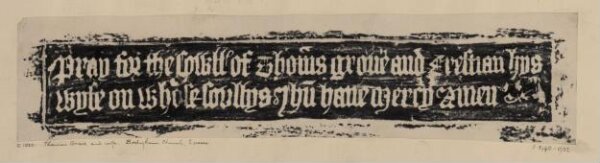 Pray for the sowll of Thom̃s groue and Crestian hys
wyfe on whose soullys Jhũ haue mercy Amen
c 1520 Thomas Grove and wife.